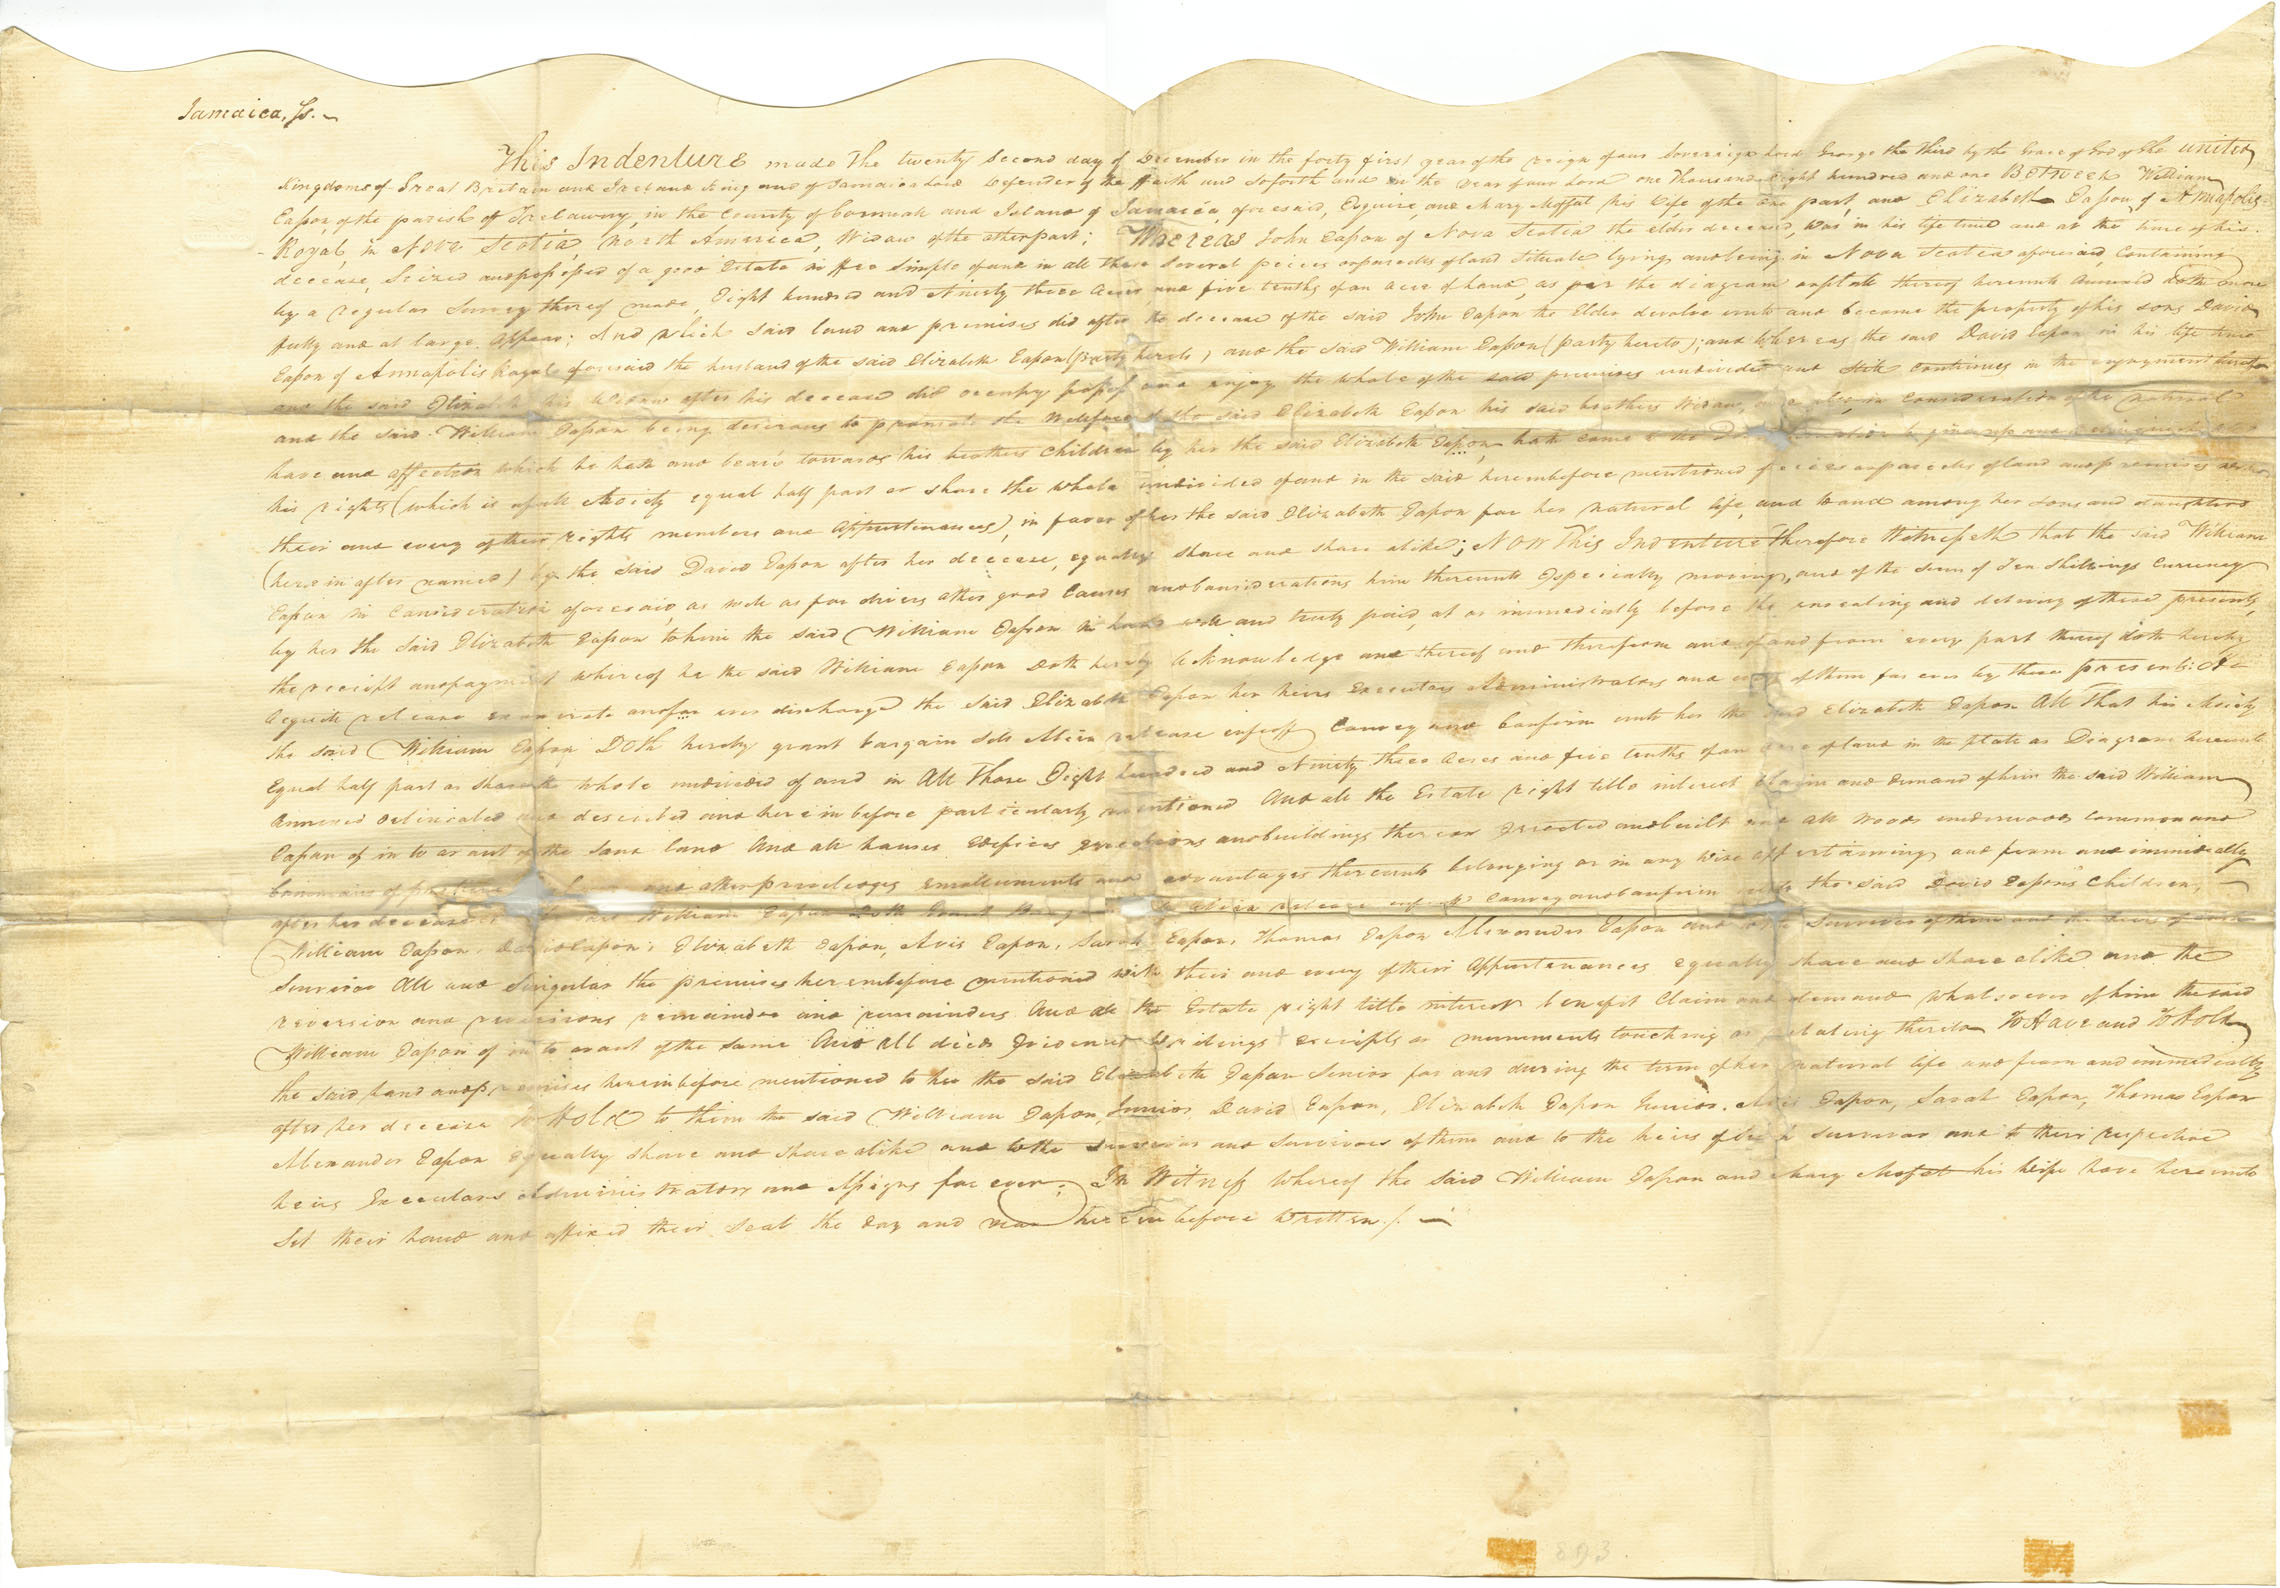 Jamaica, Ss.
This Indenture made the twenty Second day of December in the forty first year of the reign of our Sovereign Lord George the Third by the Grace of God of the United
Kingdoms of Great Britain and Ireland King and of Jamaica Lord Defender of the Faith and so forth and in the year of our Lord one Thousand Eight hundred and one Between William
Eason, of the parish of Trelawny, in the County of Cornwall and Island of Jamaica, aforesaid, Esquire, and Mary Moffat his Wife of the one part, and Elizabeth Eason, of Annapolis
Royal, in Nova Scotia, North America, Widow of the other part; Whereas John Eason of Nova Scotia the elder deceased, was in his life time and at the time of his
decease, Seized and possessed of a good Estate in Fee Simple of and in all those Several peices or parcells of land Situate lying and being in Nova Scotia aforesaid, Containing
by a regular Survey thereof made, Eight hundred and Ninety three Acres and five tenths of an acre of Land, as per the diagram or platt thereof hereunto Annexed doth more
fully and at large Appear; And which said land and premises did after the decease of the said John Eason the Elder devolve unto and became the property of his sons David
Eason of Annapolis Royal aforesaid the husband of the said Elizabeth Eason (party hereto) and the said William Eason (party hereto); and Whereas the said David Eason in his life time
and the said Elizabeth his Widow after his decease did occupy possess and enjoy the whole of the said premises undivided and Still continues in the enjoyment thereof
and the said William Eason being desirous to promote the Welfare of the said Elizabeth Eason his said brothers Widow, and also in consideration of the natural
love and affection which he hath and bears towards his brothers Children by her the said Elizabeth Eason, hath come to the to give up and
his rights (which is a full Moiety equal half part or share the whole undivided of and in the said hereinbefore mentioned peices or parcells of land and premises
their and every of their rights members and Appurtenances), in favor of her the said Elizabeth Eason for her natural life, and to and among her sons and daughters
(herein after named) by the said David Eason after her decease, equally share and share alike; Now This Indenture Therefore Witnesseth that the said William
Eason in Consideration aforesaid, as well as for divers other good Causes and Considerations him thereunto Especially moving, and of the sum of Ten Shillings Currency
by her the said Elizabeth Eason to him the said William Eason in hand well and truly paid, at or immediatly before the ensealing and delivery of these presents,
the receipt and payment whereof he the said William Eason doth hereby Acknowledge and thereof and therefrom and of and from every part thereof doth hereby
Acquit release exonerate and for ever discharge the said Elizabeth Eason her heirs Executors Administrators and every of them for ever by these presents: He
the said William Eason Doth hereby grant bargain Sell Alien release enfeoff Convey and Confirm unto her the said Elizabeth Eason All That his Moiety
Equal half part or share the whole undivided of and in All Those Eight hundred and Ninety three Acres and five tenths of an acre of land in the platt or Diagram hereunto
Annexed delineated and described and herein before particularly mentioned And all the Estate right title interest Claim and demand of him the said William
Eason of in to or out of the same land And all houses Edifices Erections and buildings thereon Erected and built and all Woods underwoods common and
Commons of pasture and other priviledges emoluments and advantages thereunto belonging or in any wise appertaining and from and immediatly
after her decease said William Eason Doth Grant Bargain Alien release enfeoff Convey and Confirm unto the said David Easons Children,
William Eason, David Eason, Elizabeth Eason, Avis Eason, Sarah Eason, Thomas Eason Alexander Eason and to the Survivor of them and the heirs of such
Survivor All and Singular the premises hereinbefore mentioned with their and every of their Appurtenances equally share and share alike and the
reversion and reversions remainder and remainders And all the Estate right title interest benefit Claim and demand whatsoever of him the said
William Eason of in to or out of the same And All deeds Evidences Writings receipts or muniments touching or relating thereto To Have and To Hold
the said Land and premises hereinbefore mentioned to her the said Elizabeth Eason Senior for and during the term of her natural life and from and immediatly
after her decease To Hold to them the said William Eason, Junior, David Eason, Elizabeth Eason Junior, Avis Eason, Sarah Eason, Thomas Eason
Alexander Eason Equally share and share alike and to the Survivor and Survivors of them and to the heirs of such Survivor and to their respective
heirs Executors Administrators and Assigns for ever: In Witness whereof the said William Eason and Mary Moffat his Wife have hereunto
Set their hand and affixed their Seal the day and year herein before written /.
893